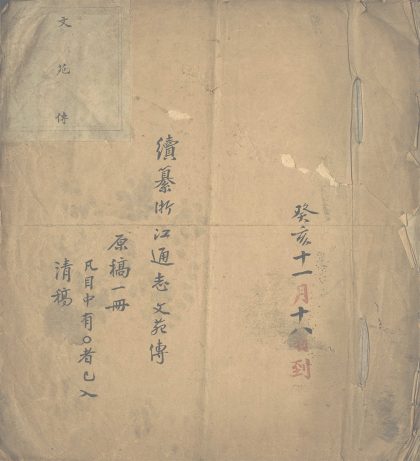 癸亥十一月十八日到
續纂浙江通志文苑傳
原稿一冊
凡目中有○者已入
清稿
文苑傳